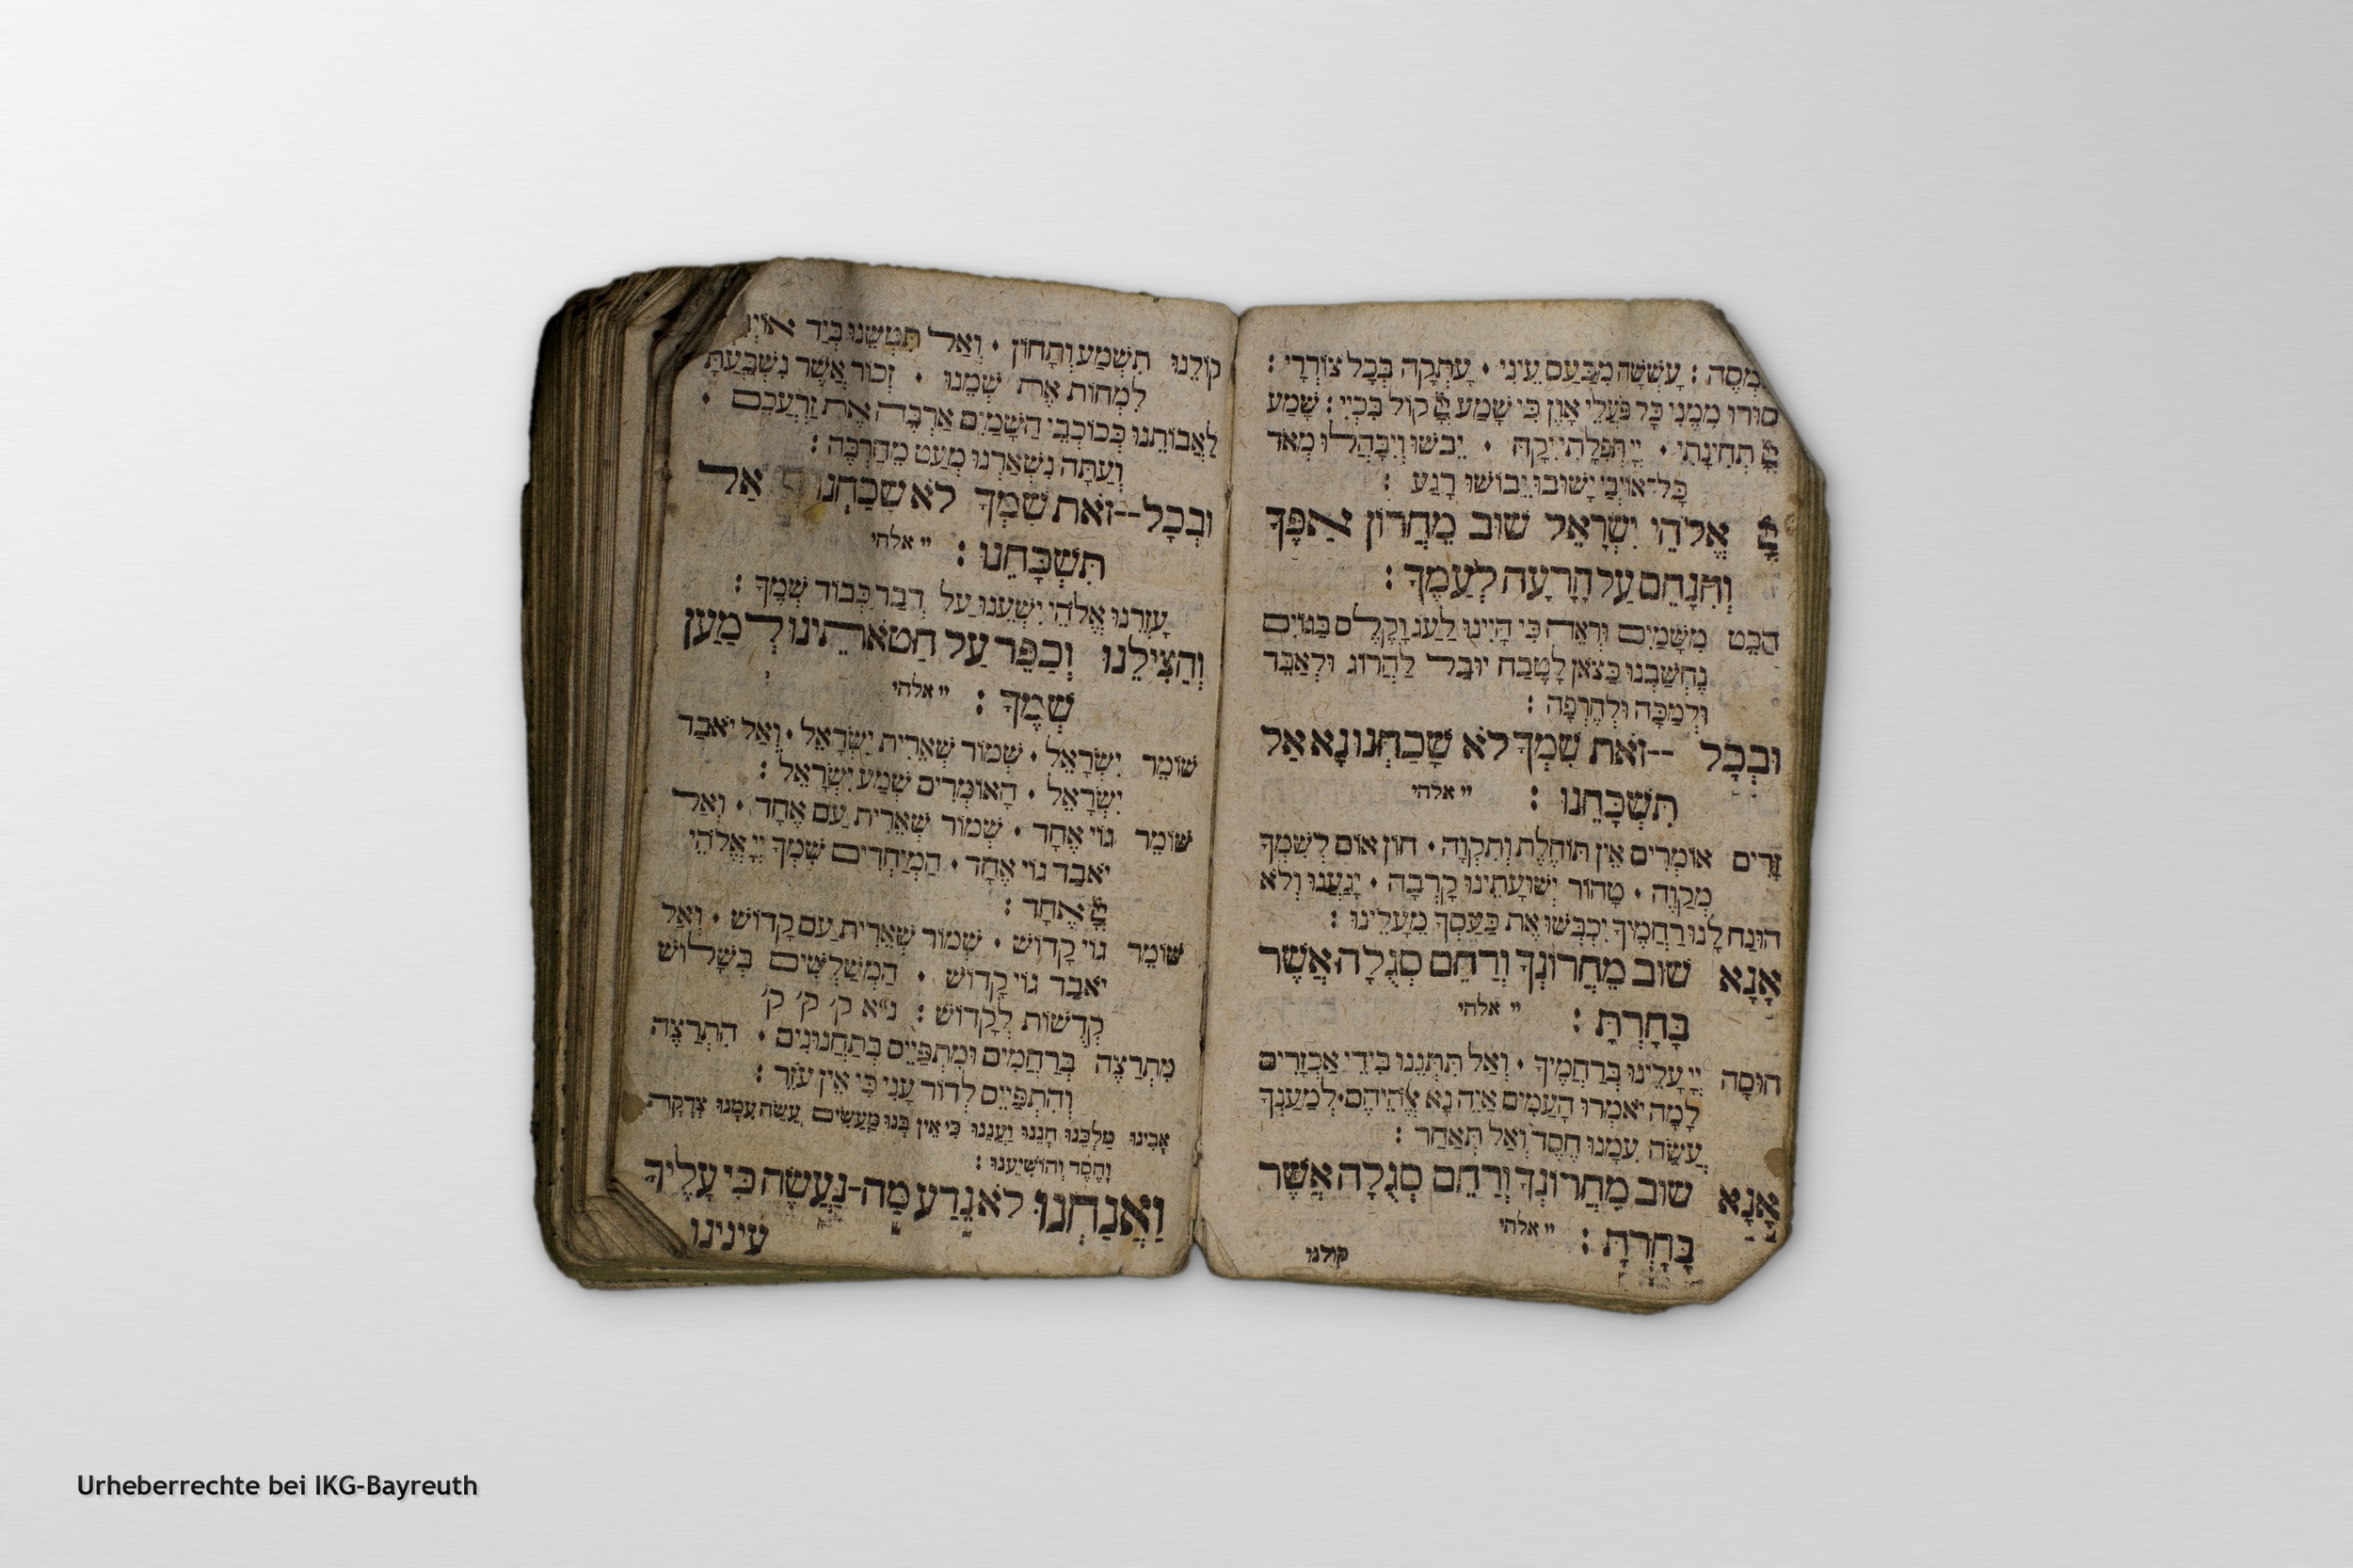 אַמְסֶה : עָשְׁשָׁה מִכַּעַס עֵינִי · עָתְקָה בְּכָל צוֹרְרָי :
סוּרוּ מִמֶּנִּי כָּל פֹּעֲלֵי אָוֶן כִּי שָׁמַע יְיָ קוֹל בִּכְיִי : שָׁמַע
יְיָ תְּחִינָתִי · יְיָ תְּפִלָּתִי יִקָּח · יֵבֹשׁוּ וְיִבָּהֲלוּ מְאֹד
כָּל־אוֹיְבָי יָשׁוּבוּ יֵבוֹשׁוּ רָגַע :
יְיָ אֱלֹהֵי יִשְׂרָאֵל שׁוּב מֵחֲרוֹן אַפֶּךָ
וְהִנָּחֵם עַל הָרָעָה לְעַמֶּךָ :
הַבֵּט מִשָּׁמַיִם וּרְאֵה כִּי הָיִינוּ לַעַג וָקֶלֶס בַּגּוֹיִם
נֶחְשַׁבְנוּ כַּצֹאן לָטֶבַח יוּבָל לַהֲרוֹג וּלְאַבֵּד
וּלְמַכָּה וּלְחֶרְפָּה :
וּבְכָל --זֹאת שִׁמְךָ לֹא שָׁכַחְנוּ נָא אַל
תִּשְׁכָּחֵנוּ : יי אלהי
זָרִים אוֹמְרִים אֵין תּוֹחֶלֶת וְתִקְוָה · חוֹן אוֹם לְשִׁמְךָ
מְקַוָּה · טָהוֹר יְשׁוּעָתֵינוּ קָרְבָה · יָגַעְנוּ וְלֹא
הוּנַח לָנוּ רַחֲמֶיךָ יִכְבְּשׁוּ אֶת כַּעַסְךָ מֵעָלֵינוּ :
אָנָא שׁוּב מֵחֲרוֹנְךָ וְרַחֵם סְגֻלָּה אֲשֶׁר
בָּחָרְתָּ : יי אלהי
חוּסָה יְיָ עָלֵינוּ בְּרַחֲמֶיךָ · וְאַל תִּתְּנֵנוּ בִּידֵי אַכְזָרִים
לָמָּה יֹאמְרוּ הָעַמִּים אַיֵּה נָא אֱלֹהֵיהֶם · לְמַעַנְךָ
עֲשֵׂה עִמָּנוּ חֶסֶד וְאַל תְּאַחַר :
אָנָא שׁוּב מֵחֲרוֹנְךָ וְרַחֵם סְגֻלָּה אֲשֶׁר
בָּחָרְתָּ : יי אלהי
קולנו
קוֹלֵנוּ תִשְׁמַע וְתָחוֹן · וְאַל תִּטְּשֵׁנוּ בְּיַד
לִמְחוֹת אֶת שְׁמֵנוּ · זְכוֹר אֲשֶׁר נִשְׁבַּעְתָּ
לַאֲבוֹתֵנוּ כְּכוֹכְבֵי הַשָּׁמַיִם אַרְבֶּה אֶת זַרְעֲכֶם ·
וְעַתָּה נִשְׁאַרְנוּ מְעַט מֵהַרְבֵּה :
וּבְכָל--זֹאת שִׁמְךָ לֹא שָׁכַחְנוּ אַל
תִּשְׁכָּחֵנוּ : יי אלהי
עָזְרֵנוּ אֱלֹהֵי יִשְׁעֵנוּ עַל דְּבַר כְּבוֹד שְׁמֶךָ :
וְהַצִּילֵנוּ וְכַפֵּר עַל חַטֹּאתֵינוּ לְמַעַן
שְׁמֶךָ : יי אלהי
שׁוֹמֵר יִשְׂרָאֵל · שְׁמוֹר שְׁאֵרִית יִשְׂרָאֵל · וְאַל יֹאבַד
יִשְׂרָאֵל · הָאוֹמְרִים שְׁמַע יִשְׂרָאֵל :
שׁוֹמֵר גּוֹי אֶחָד · שְׁמוֹר שְׁאֵרִית עַם אֶחָד · וְאַל
יֹאבַד גּוֹי אֶחָד · הַמְיַחֲדִים שִׁמְךָ יְיָ אֱלֹהֵי
יְיָ אֶחָד :
שׁוֹמֵר גּוֹי קָדוֹשׁ · שְׁמוֹר שְׁאֵרִית עַם קָדוֹשׁ · וְאַל
יֹאבַד גּוֹי קָדוֹשׁ · הַמְשַׁלְּשִׁים בְּשָׁלוֹשׁ
קְדֻשּׁוֹת לְקָדוֹשׁ : נ״א ק׳ ק׳ ק׳
מִתְרַצֶּה בְּרַחֲמִים וּמִתְפַּיֵּיס בְּתַחֲנוּנִים · הִתְרַצֶּה
וְהִתְפַּיֵּיס לְדוֹר עָנִי כִּי אֵין עוֹזֵר :
אָבִינוּ מַלְכֵּנוּ חָנֵּנוּ וַעֲנֵנוּ כִּי אֵין בָּנוּ מַעֲשִׂים עֲשֵׂה עִמָּנוּ צְדָקָה
וָחֶסֶד וְהוֹשִׁיעֵנוּ :
וַאֲנַחְנוּ לֹא נֵדַע מַה-נַּעֲשֶׂה כִּי עָלֶיךָ
עינינו
Urheberrechte bei IKG-Bayreuth